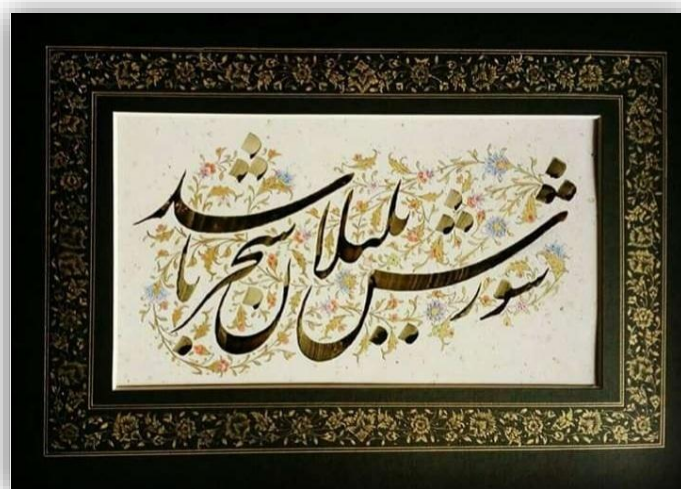 شورش بلبلان سحر باشد